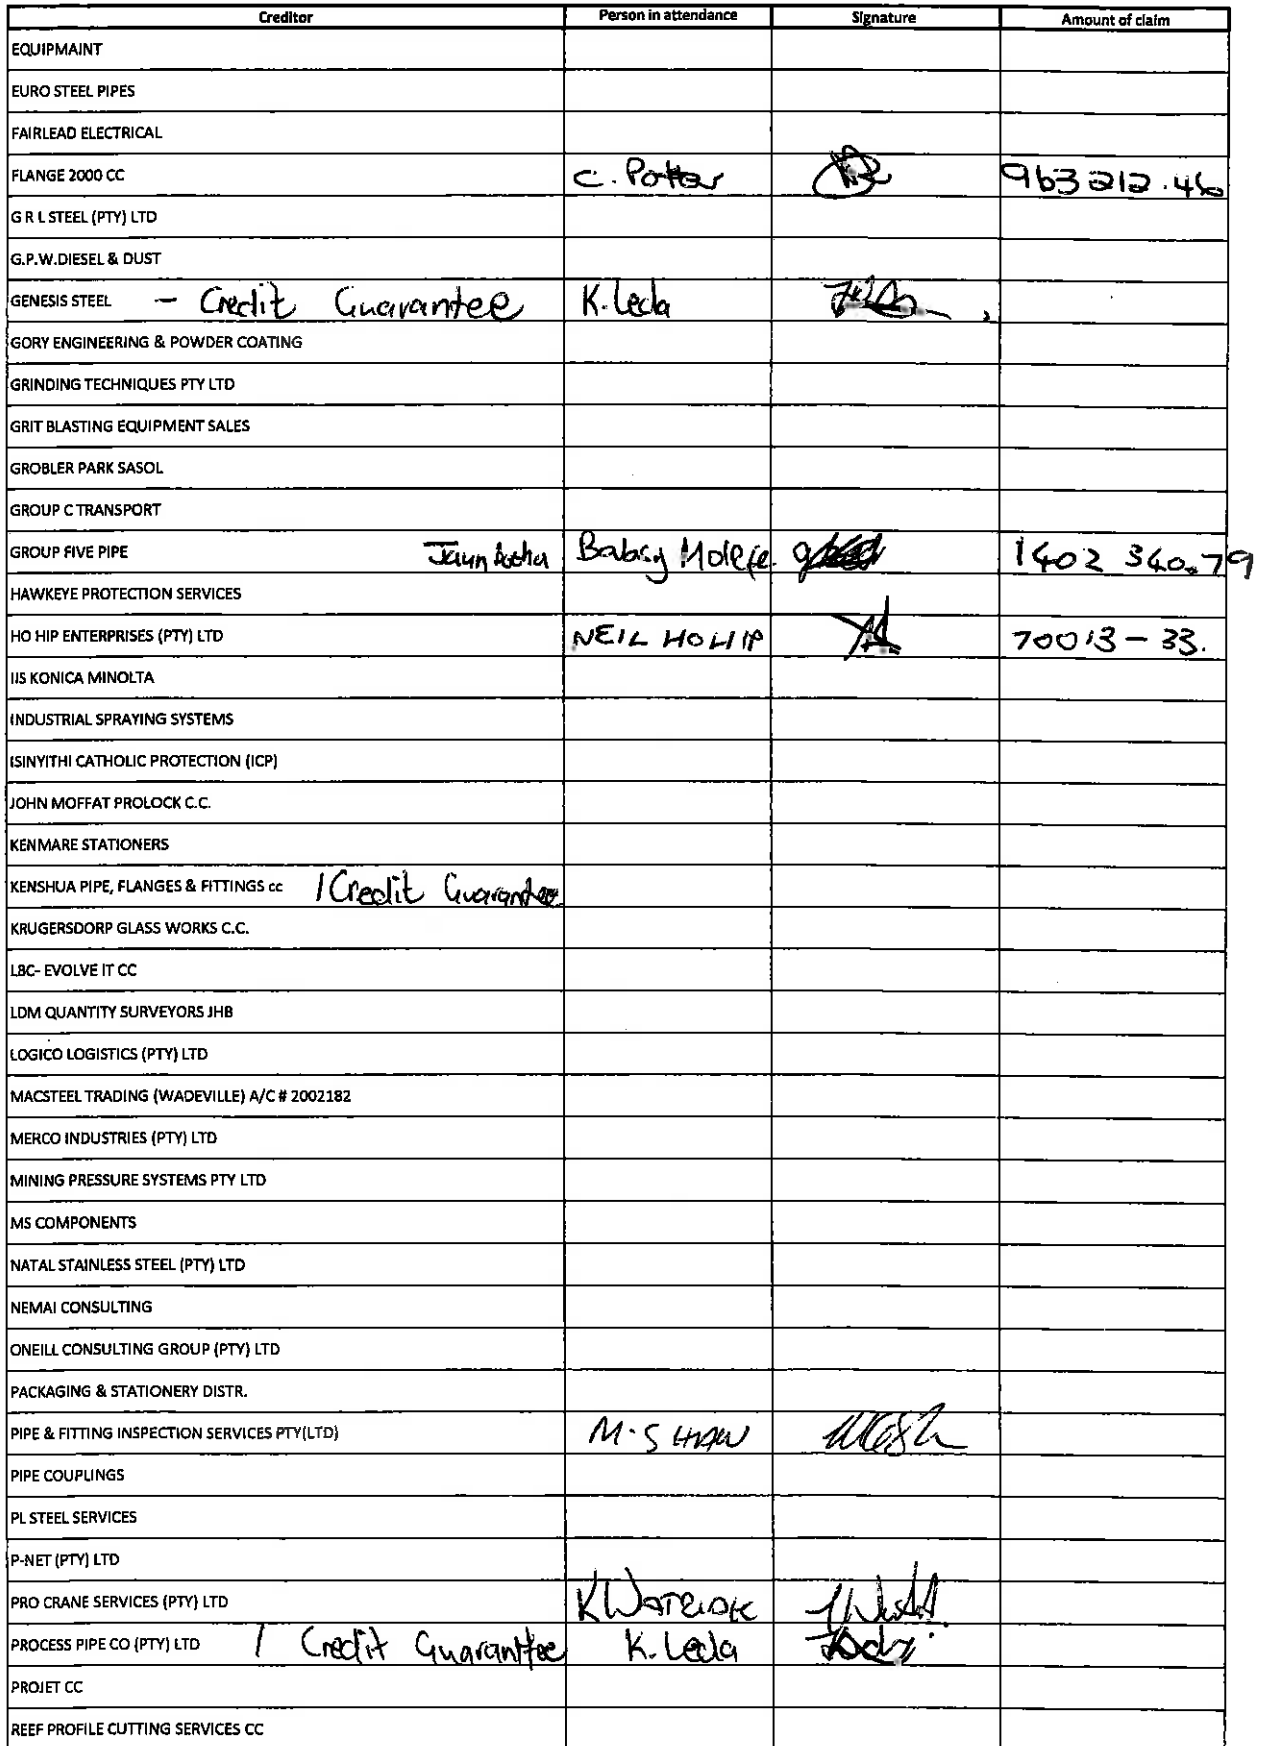 Creditor Person in attendance Signature Amount of claim
EQUIPMAINT
EURO STEEL PIPES
FAIRLEAD ELECTRICAL
FLANGE 2000 CC C. Potter 963 212.46
G R L STEEL (PTY) LTD
G.P.W.DIESEL & DUST
GENESIS STEEL - Credit Guarantee K. Leda
GORY ENGINEERING & POWDER COATING
GRINDING TECHNIQUES PTY LTD
GRIT BLASTING EQUIPMENT SALES
GROBLER PARK SASOL
GROUP C TRANSPORT
GROUP FIVE PIPE Molefe 1402 340.79
HAWKEYE PROTECTION SERVICES
HO HIP ENTERPRISES (PTY) LTD NEIL HO HIP 70013-33.
IIS KONICA MINOLTA
INDUSTRIAL SPRAYING SYSTEMS
ISINYITHI CATHOLIC PROTECTION (ICP)
JOHN MOFFAT PROLOCK C.C.
KENMARE STATIONERS
KENSHUA PIPE, FLANGES & FITTINGS cc / Credit Guarantee
KRUGERSDORP GLASS WORKS C.C.
LBC- EVOLVE IT CC
LDM QUANTITY SURVEYORS JHB
LOGICO LOGISTICS (PTY) LTD
MACSTEEL TRADING (WADEVILLE) A/C # 2002182
MERCO INDUSTRIES (PTY) LTD
MINING PRESSURE SYSTEMS PTY LTD
MS COMPONENTS
NATAL STAINLESS STEEL (PTY) LTD
NEMAI CONSULTING
ONEILL CONSULTING GROUP (PTY) LTD
PACKAGING & STATIONERY DISTR.
PIPE & FITTING INSPECTION SERVICES PTY(LTD) M. SHAW
PIPE COUPLINGS
PL STEEL SERVICES
P-NET (PTY) LTD
PRO CRANE SERVICES (PTY) LTD
PROCESS PIPE CO (PTY) LTD / Credit Guarantee K. Leda
PROJET CC
REEF PROFILE CUTTING SERVICES CC